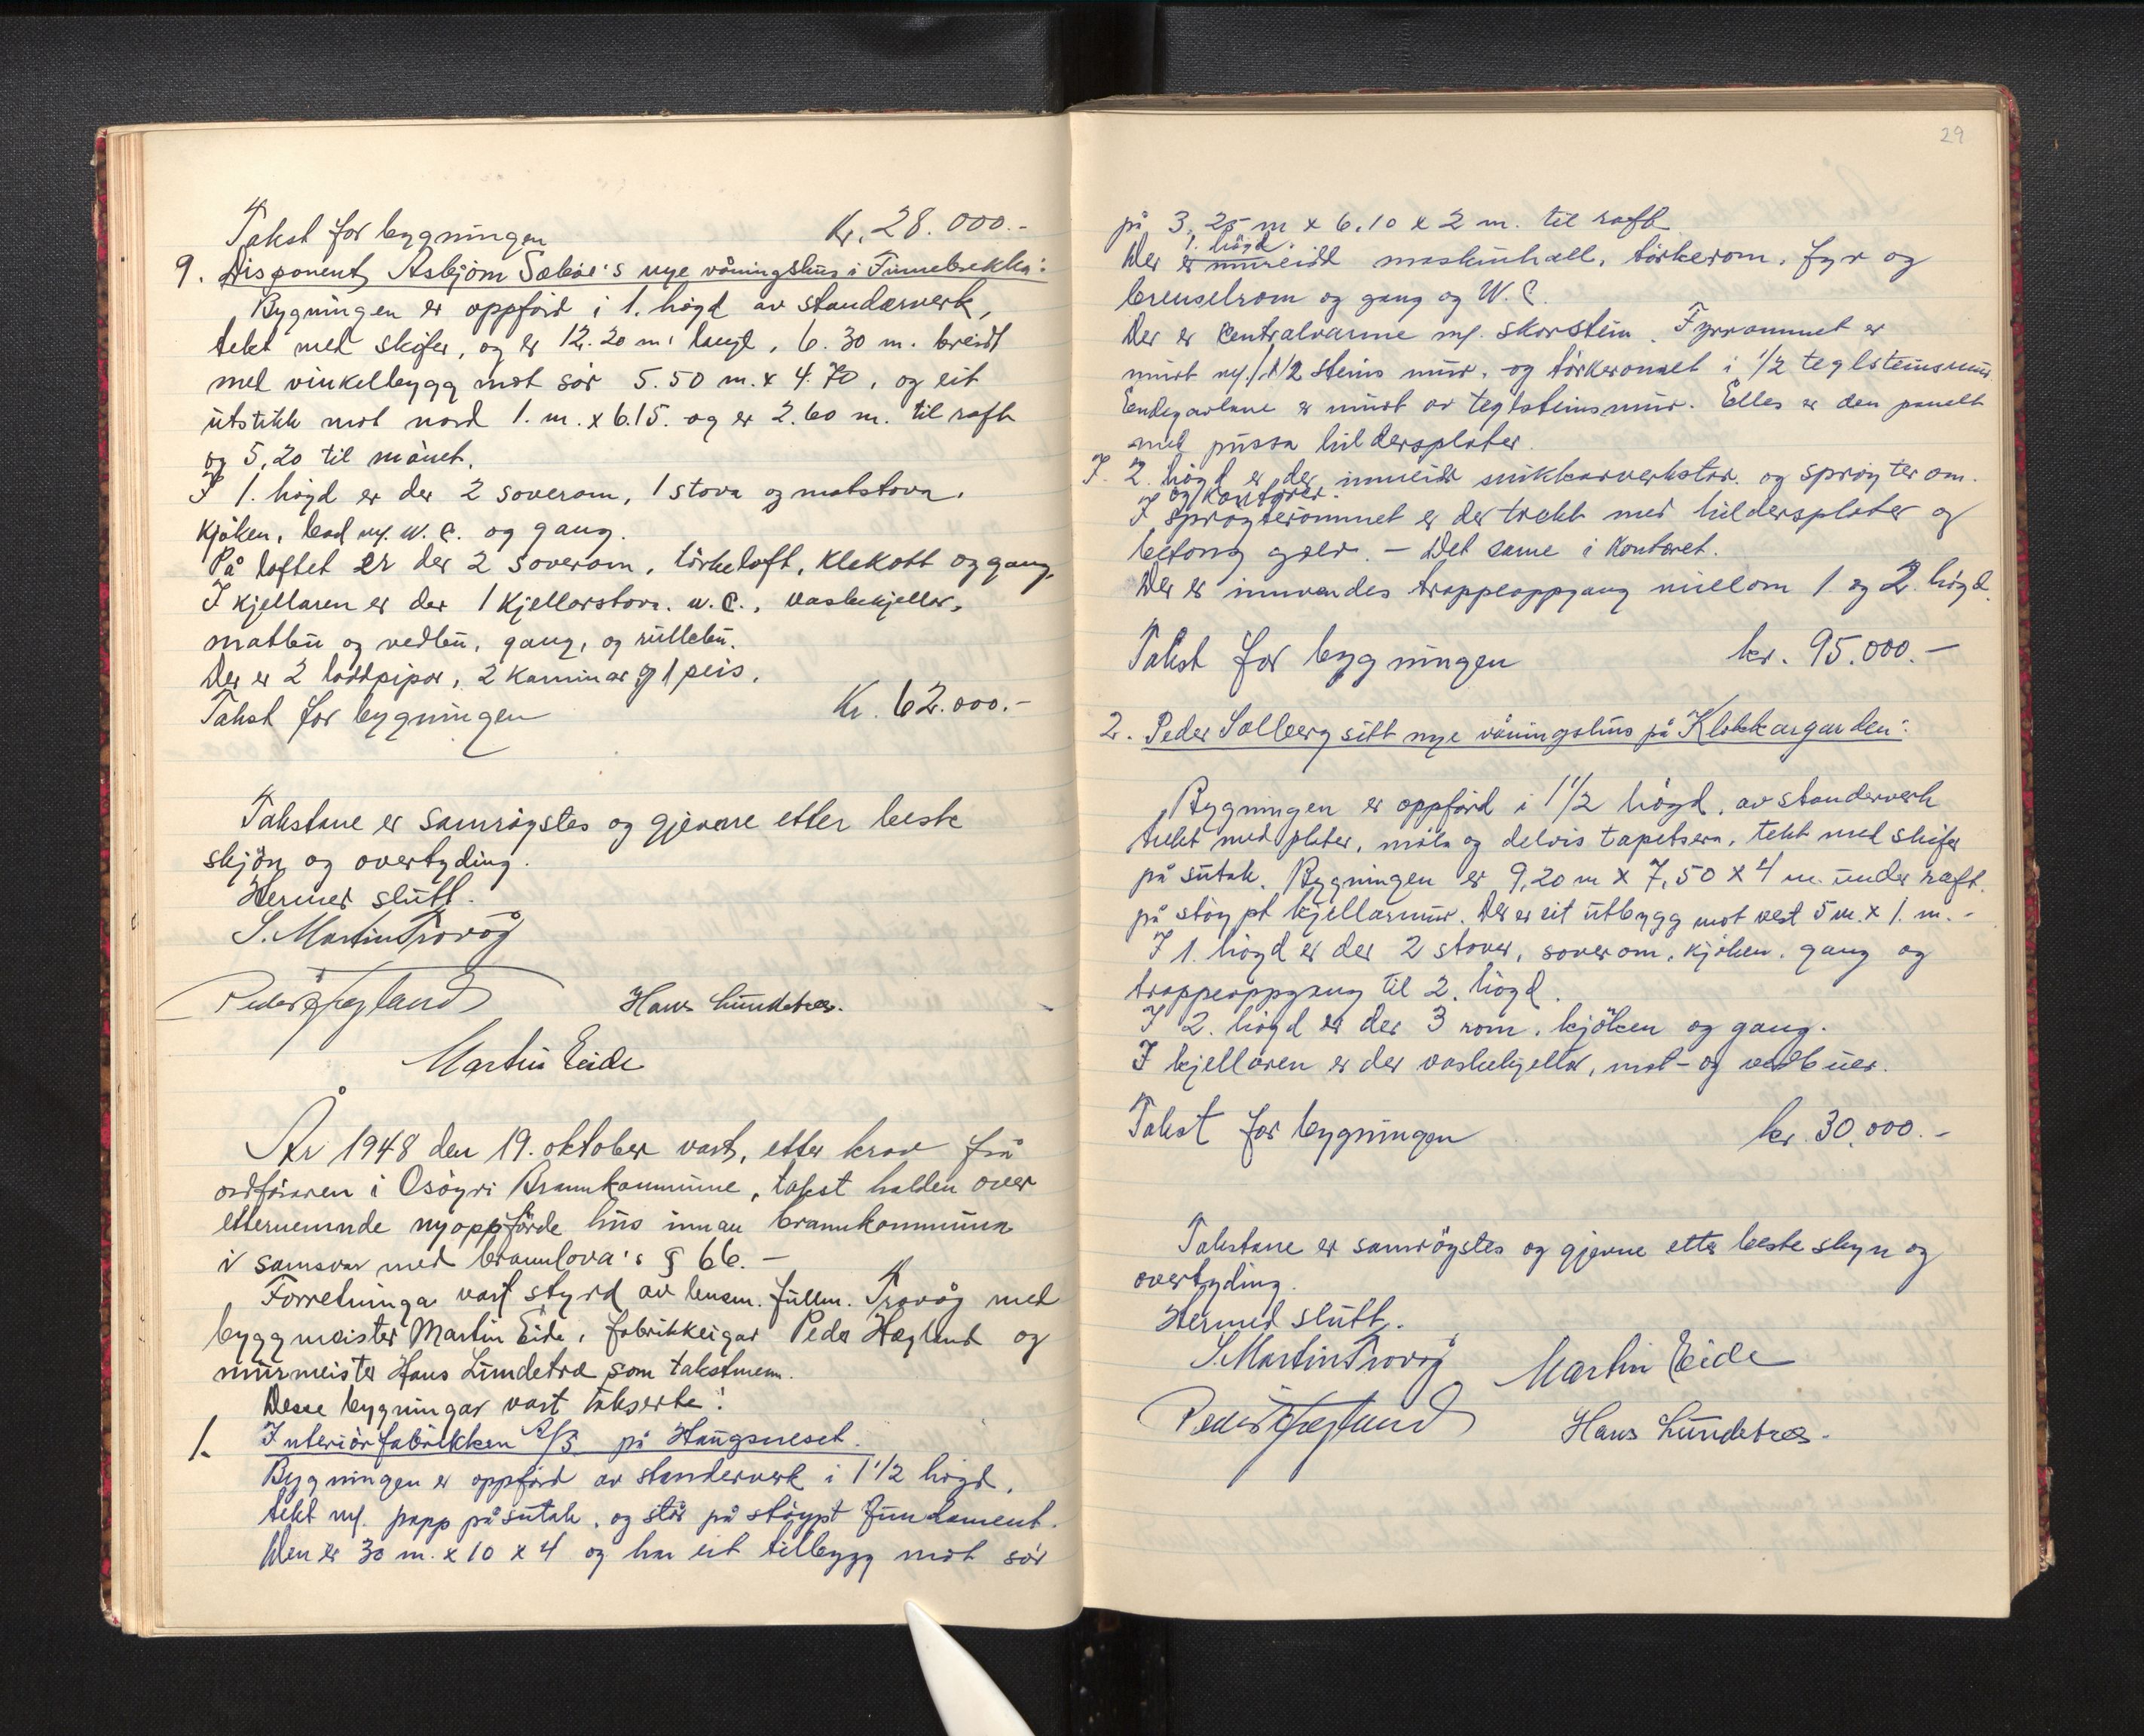 Takst for bygningen Kr. 28.000.-
9. Disponent Asbjørn Sæbøe's nye våningshus i Finnebrekka:
Bygningen er oppförd i 1. högd av standarverk,
tekt med skifer, og er 12.20 m. langt, 6.30 m. breidt
med vinkelbygg mot sör 5.50 m. x 4.70, og eit
utstikk mot nord 1. m. x 6.15. og er 2.60 m. til raft
og 5,20 til mönet.
I 1. högd er der 2 soverom, 1 stova og matstova,
kjöken, bad m/. W.C. og gang.
På loftet er der 2 soverom, törkeloft, klekott og gang.
I kjellaren er der 1 kjellarstova. W.C., vaskekjellar,
matbu og vedbu, gang, og rullebu.
Der er 2 loddpipor, 2 kaminar og 1 peis.
Takst for bygningen Kr. 62.000.-
Takstane er samröystes og gjevne etter beste
skjön og overtyding.
Hermed slutt.
S. Martin Trovåg
Peder Hægland Hans Lundetræ.
Martin Eide
År 1948 den 19. oktober vart, etter krav frå
ordföraren i Osöyri Brannkommune, takst halden over
etternemnde nyoppförde hus innan brannkommuna
i samsvar med brannlova's § 66. -
Forretninga vart styrd av lensm. fullm. Trovåg med
byggmeister Martin Eide, fabrikkeigar Peder Hægland og
murmeister Hans Lundetræ som takstmenn.
Desse bygningar vart takserte:
1. Interiörfabrikken A/S på Haugsneset.
Bygningen er oppförd av standerverk i 1 1/2 högd,
tekt m/. papp på sutak, og står på stöypt fundament.
Den er 30 m. x 10 x 4 og har eit tilbygg mot sör
29
på 3,25 m x 6,10 x 2 m. til raft
1. högd.
Der er innreidd maskinhall, törkerom, fyr og
brenselrom og gang og W.C.
Der er Centralvarme m/. skorstein. Fyrrommet er
murt m/. 1 1/2 steins mur, og törkerommet i 1/2 teglsteinsmur
Endegavlane er murt av teglsteinsmur. Elles er den panelt
med pussa huldersplater.
I. 2. högd er der innreidd snikkarverkstad. og spröyterom.
og kontorer.
I spröyterommet er der trekt med huldersplater og
betong golv. - Det same i kontoret.
Der er innvendes trappeoppgang millom 1. og 2. högd.
Takst for bygningen kr. 95.000.-
2. Peder Solberg sitt nye våningshus på Klokkargarden:
Bygningen er oppförd i 1 1/2 högd, av standerverk
trekt med plater, måla og delvis tapetsera, tekt med skifer
på sutak. Bygningen er 9,20 m x 7,50 x 4 m. under raft.
på stöypt kjellarmur. Der er eit utbygg mot vest 5 m. x 1. m. -
I 1. högd er der 2 stover, soverom, kjöken, gang og
trappeoppgang til 2. högd.
I 2. högd er der 3 rom, kjöken og gang.
I kjellaren er der vaskekjellar, mat- og vedbuer.
Takst for bygningen kr. 30.000.-
Takstane er samröystes og gjevne etter beste skyn og
overtyding.
Hermed slutt.
S. Martin Trovåg Martin Eide
Peder Hægland Hans Lundetræ.